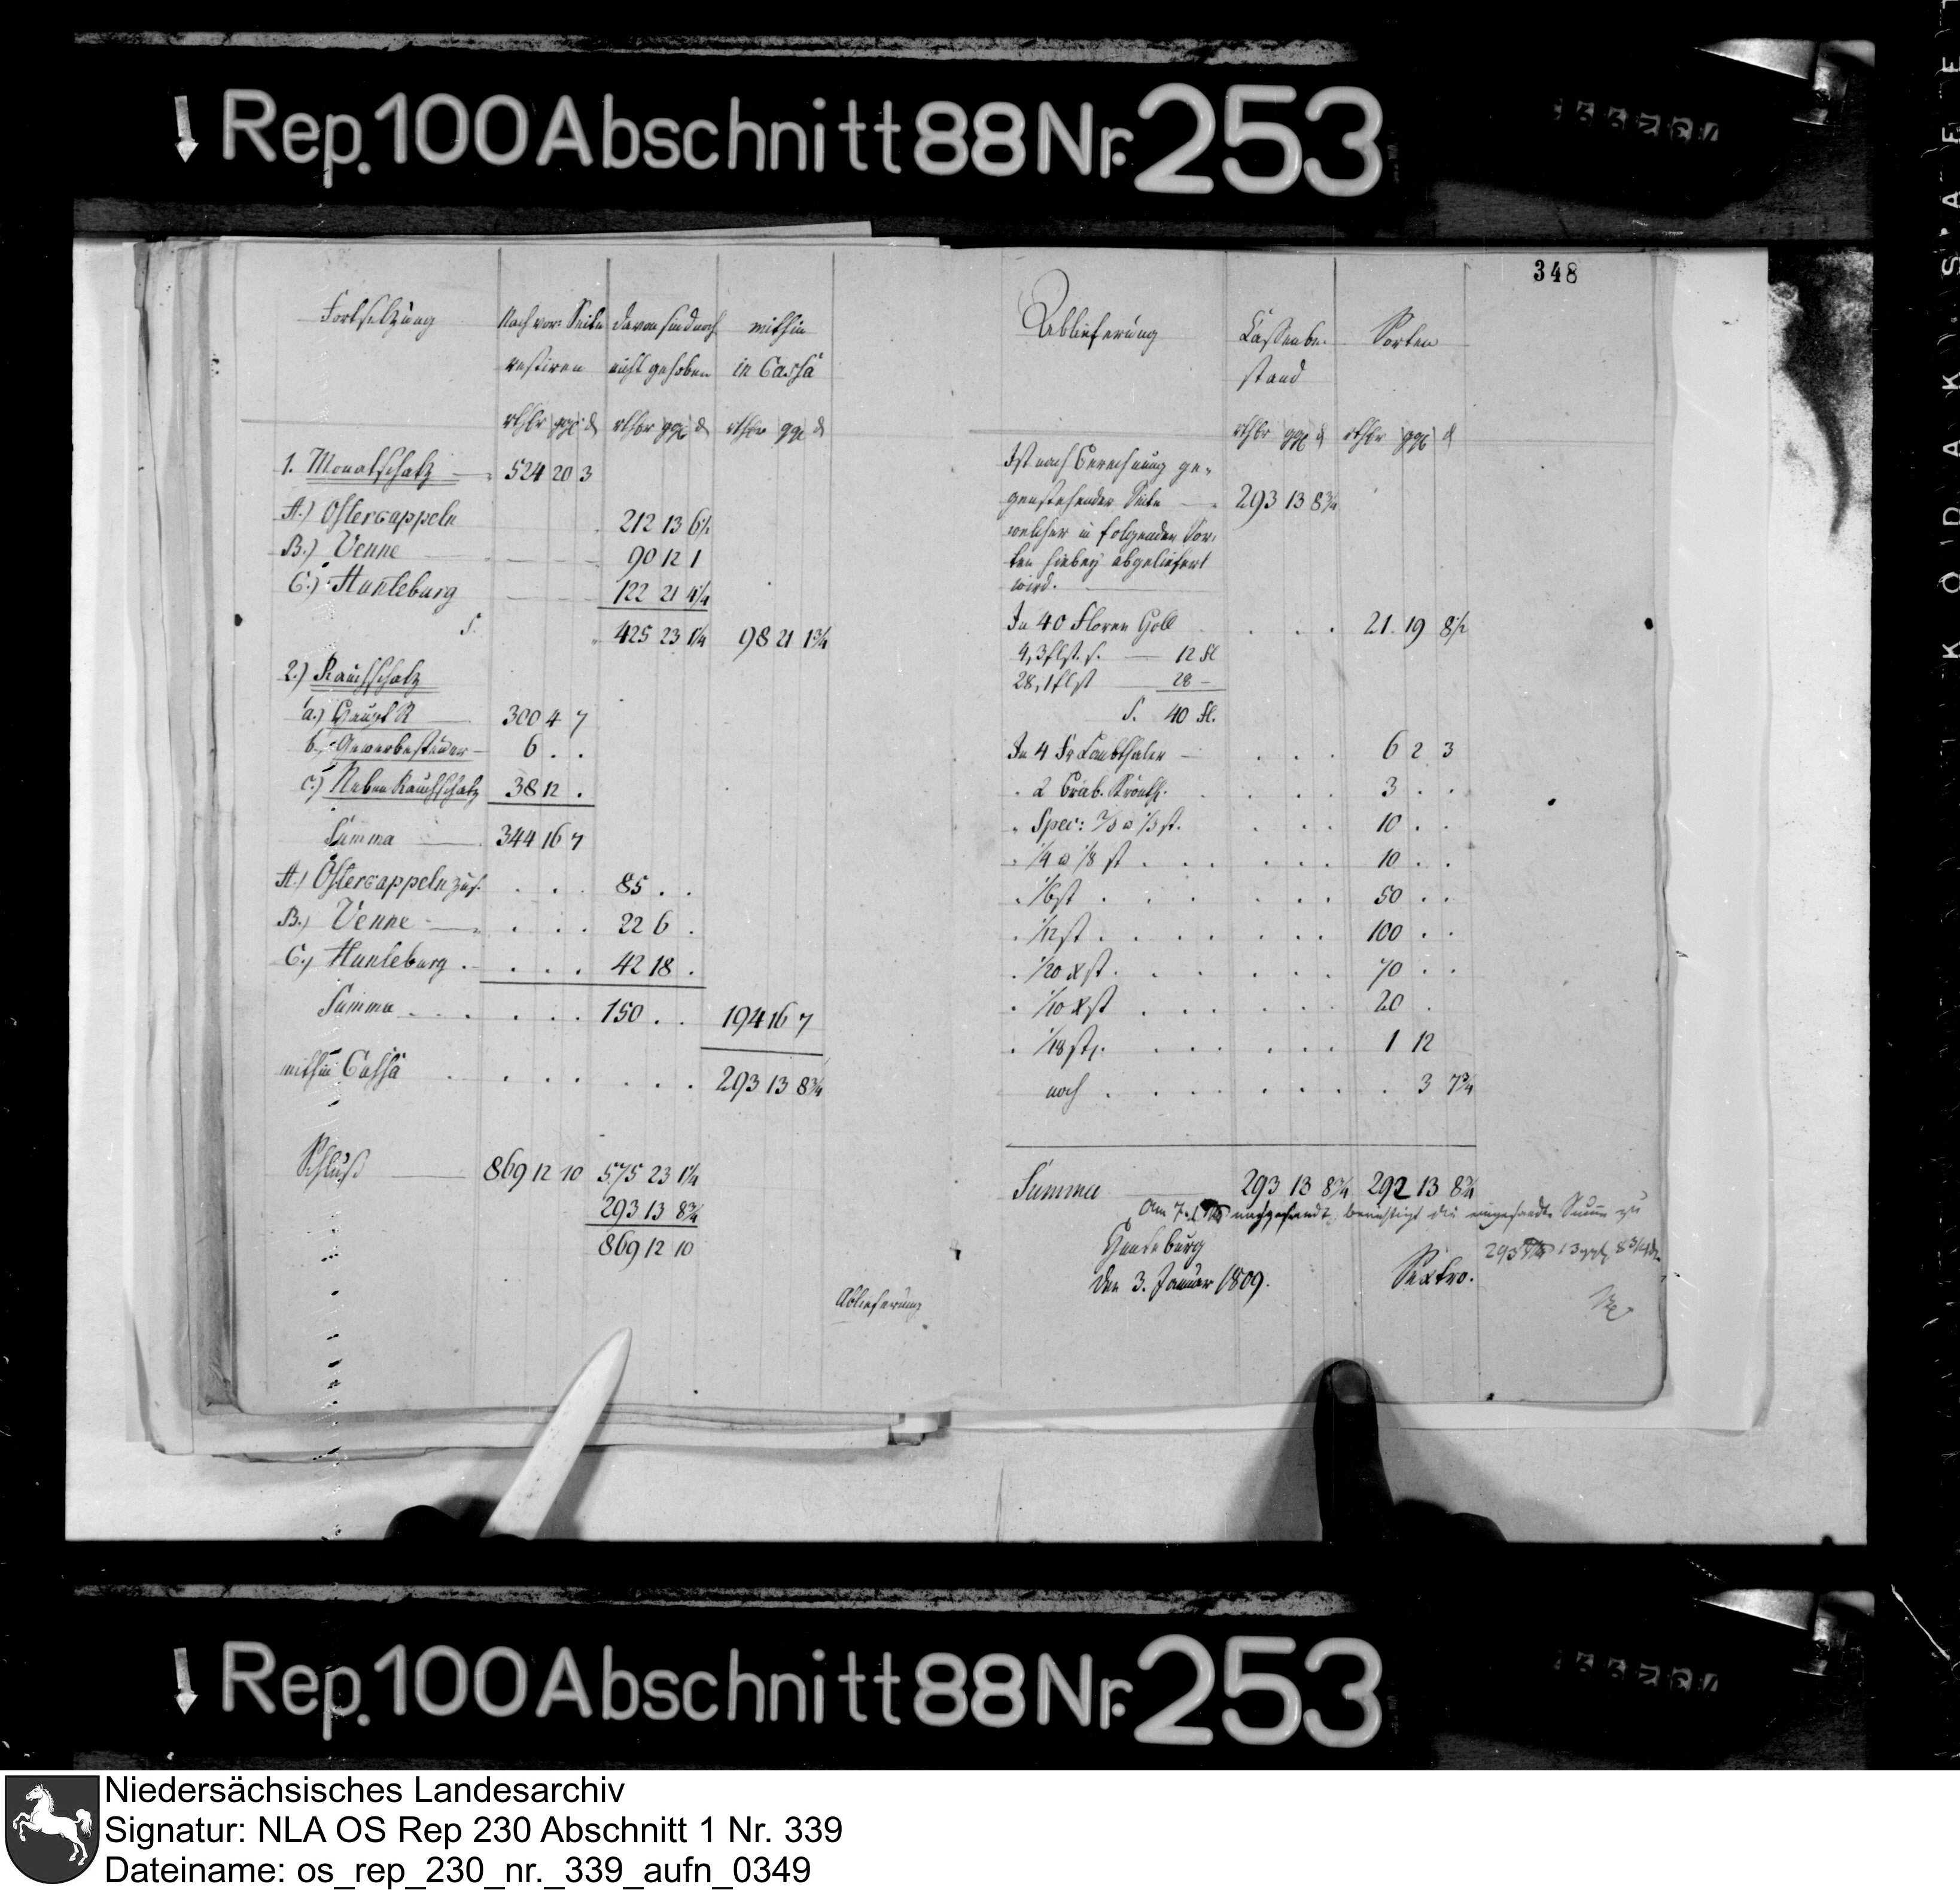 Rep. 100 Abschnitt 88 Nr. 253
348
Fortsetzung
Nach vor: Seite restiren
davon sind noch nicht gehoben
mithin in Cassa
rthlr ggl d rthlr ggl d rthlr ggl d
1. Monatschatz 524 20 3
A.) Ostercappeln 212 13 6½
B.) Venne 90 12 1
C.) Hunteburg 122 21 4¼
S. 425 23 1¼ 98 21 1¾
2.) Rauchschatz
a.) Haupt R 300 4 7
b. Gewerbesteuer 6 . .
c.) Neben Rauchschatz 38 12 .
Summa 344 16 7
A.) Ostercappeln zus. 85 . .
B.) Venne 22 6 .
C.) Hunteburg 42 18 .
Summa 150 . . 194 16 7
mithin Cassa 293 13 8¾
Schluß 869 12 10 575 23 1¼
293 13 8¾
869 12 10
Ablieferung
Ablieferung
Cassenbe-
stand
Sorten
rthlr ggl d rthlr ggl d
Ist nach Berechnung ge-
genstehender Seite 293 13 8¾
welcher in folgenden Sor-
ten hiebey abgeliefert
wird.
In 40 Floren Gold 21. 19 8½
4, 3 flst. s. 12 fl
28, 1 flst 28 -
S. 40 fl.
In 4 Fr Laubthaler 6 2 3
2 Brab. Kronth. 3 . .
Spec: 2/3 a 1/3 st. 10 . .
1/4 a 1/8 st 10 . .
1/6 st 50 . .
1/12 st 100 . .
1/20 st. 70 . .
1/10 st 20 .
1/18 st. 1 12
noch . 3 7¾
Summa 293 13 8¾ 292 13 8¾
Am 7. nachgesandt, berichtigt die eingesandte Summe zu
293 13 ggl 8¾
Hunteburg
den 3. Januar 1809.
Sextro.
Rep. 100 Abschnitt 88 Nr. 253
KODAK
SAFE
Niedersächsisches Landesarchiv
Signatur: NLA OS Rep 230 Abschnitt 1 Nr. 339
Dateiname: os_rep_230_nr._339_aufn_0349